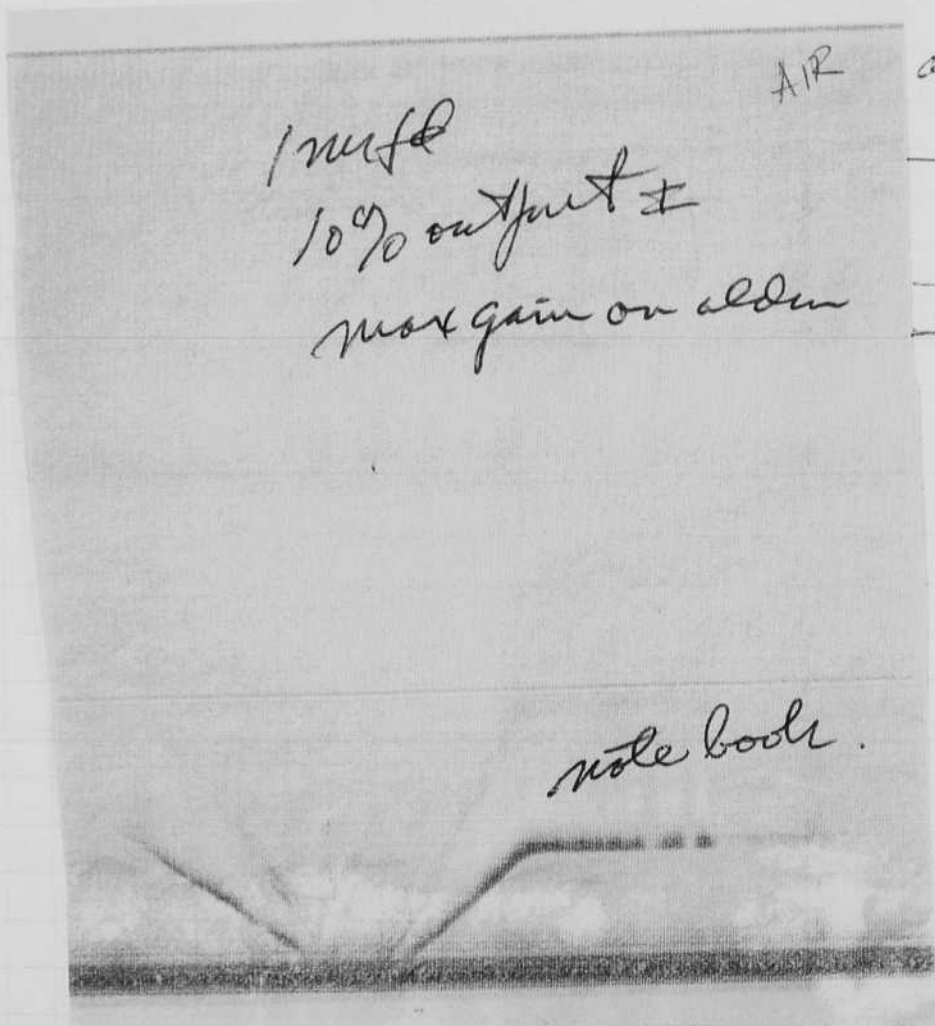 AIR
1 mfd
10% output ±
max gain on alden
note book.